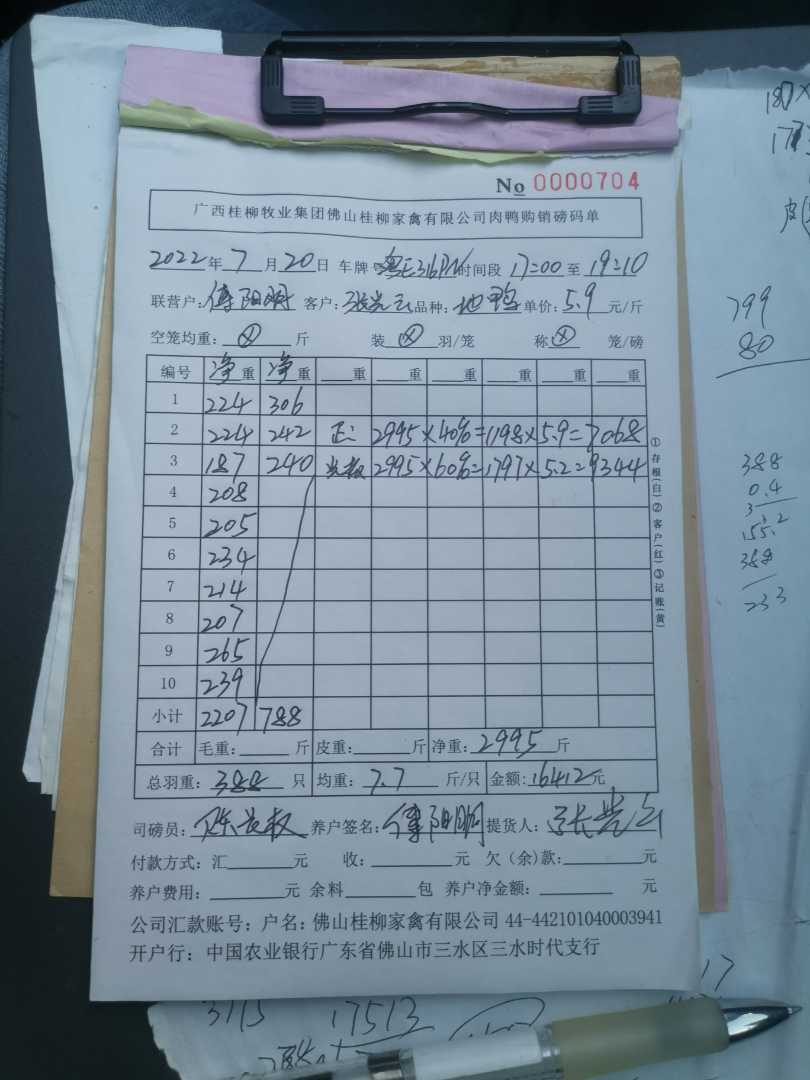 No 0000704
广西桂柳牧业集团佛山桂柳家禽有限公司肉鸭购销磅码单
2022年7月20日 车牌 时间段 17:00至19:10
联营户:傅阳明 客户: 品种:地鸭 单价:5.9元/斤
空笼均重: 斤 装 羽/笼 称 笼/磅
编号 净重 净重 重 重 重 重 重 重
1 224 306
2 224 242 正: 2995×40%=1198×5.9=7068
3 187 240 2995×60%=1797×5.2=9344
4 208
5 205
6 234
7 214
8 207
9 265
10 239
小计 2207 788
合计 毛重: 斤 皮重: 斤 净重:2995斤
总羽重:388只 均重:7.7斤/只 金额:16412元
司磅员: 养户签名:傅阳明 提货人:
付款方式:汇 元 收: 元 欠(余)款: 元
养户费用: 元 余料 包 养户净金额: 元
公司汇款账号:户名:佛山桂柳家禽有限公司 44-442101040003941
开户行:中国农业银行广东省佛山市三水区三水时代支行
①存根(白)②客户(红)③记账(黄)
799
80
388
0.4
155.2
388
233
17513